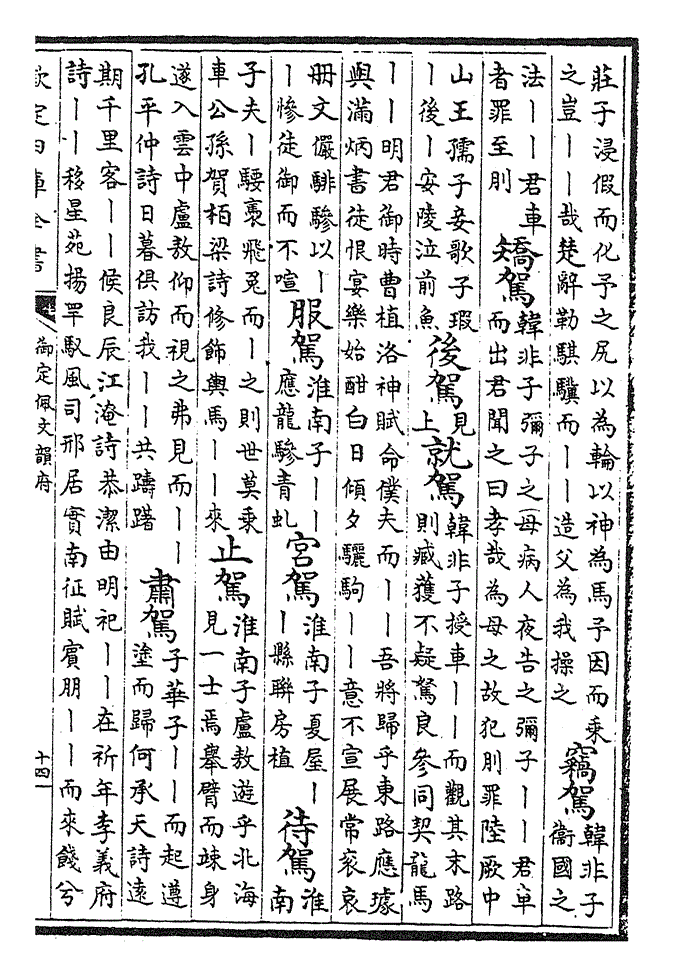 莊子浸假而化予之尻以為輪以神為馬予因而乘
之豈丨丨哉楚辭勒騏驥而丨丨造父為我操之
竊駕
韓非子
衞國之
法丨丨君車
者罪至刖
矯駕
韓非子彌子之母病人夜告之彌子丨丨君車
而出君聞之曰孝哉為母之故犯刖罪陸厥中
山王孺子妾歌子瑕
丨後丨安陵泣前魚
後駕
見
上
就駕
韓非子授車丨丨而觀其末路
則臧獲不疑駑良參同契龍馬
丨丨明君御時曹植洛神賦命僕夫而丨丨吾將歸乎東路應璩
與滿炳書徒恨宴樂始酣白日傾夕驪駒丨丨意不宣展常衮哀
册文儼騑驂以丨
丨慘徒御而不喧
服駕
淮南子丨丨
應龍驂青虬
宮駕
淮南子夏屋丨
丨縣聯房植
待駕
淮
南
子夫丨騕褭飛兔而丨之則世莫乘
車公孫賀柏梁詩修飾輿馬丨丨來
止駕
淮南子盧敖遊乎北海
見一士焉舉臂而竦身
遂入雲中盧敖仰而視之弗見而丨丨
孔平仲詩日暮俱訪我丨丨共躊躇
肅駕
子華子丨丨而起遵
塗而歸何承天詩遠
期千里客丨丨候良辰江淹詩恭潔由明祀丨丨在祈年李義府
詩丨丨移星苑揚罕馭風司邢居實南征賦賓朋丨丨而來餞兮
欽定四庫全書
御定佩文韻府
十四一